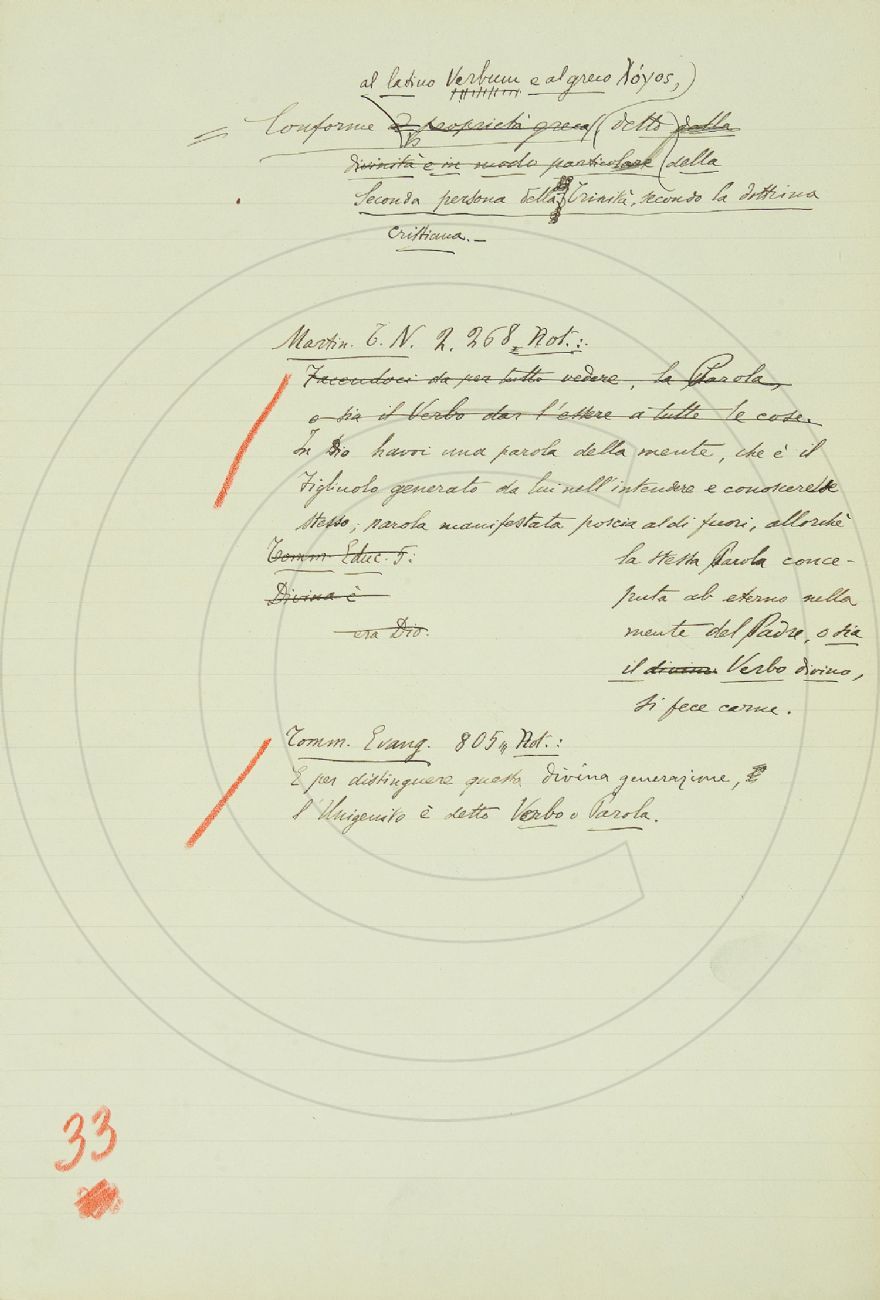 al latino Verbum e al greco Λόγος,
= Conforme a proprietà greca detto dalla
divinità e in modo particolare dalla
Seconda persona della Trinità, secondo la dottrina
Cristiana.—
Martin. T. N. 2. 268, Not.:
Facendoci da per tutto vedere, la Parola,
o sia il Verbo dar l'essere a tutte le cose.
In Dio havvi una parola della mente, che è il
Figliuolo generato da lui nell'intendere e conoscere se
stesso; parola manifestata poscia al di fuori, allorchè
la stessa Parola conce-
puta ab eterno nella
mente del Padre, o sia
il divino Verbo divino,
si fece carne.
Tomm. Educ. 5:
Divina è
era Dio.
Tomm. Evang. 805, Not.:
E per distinguere questa divina generazione,
l'Unigenito è detto Verbo o Parola.
33